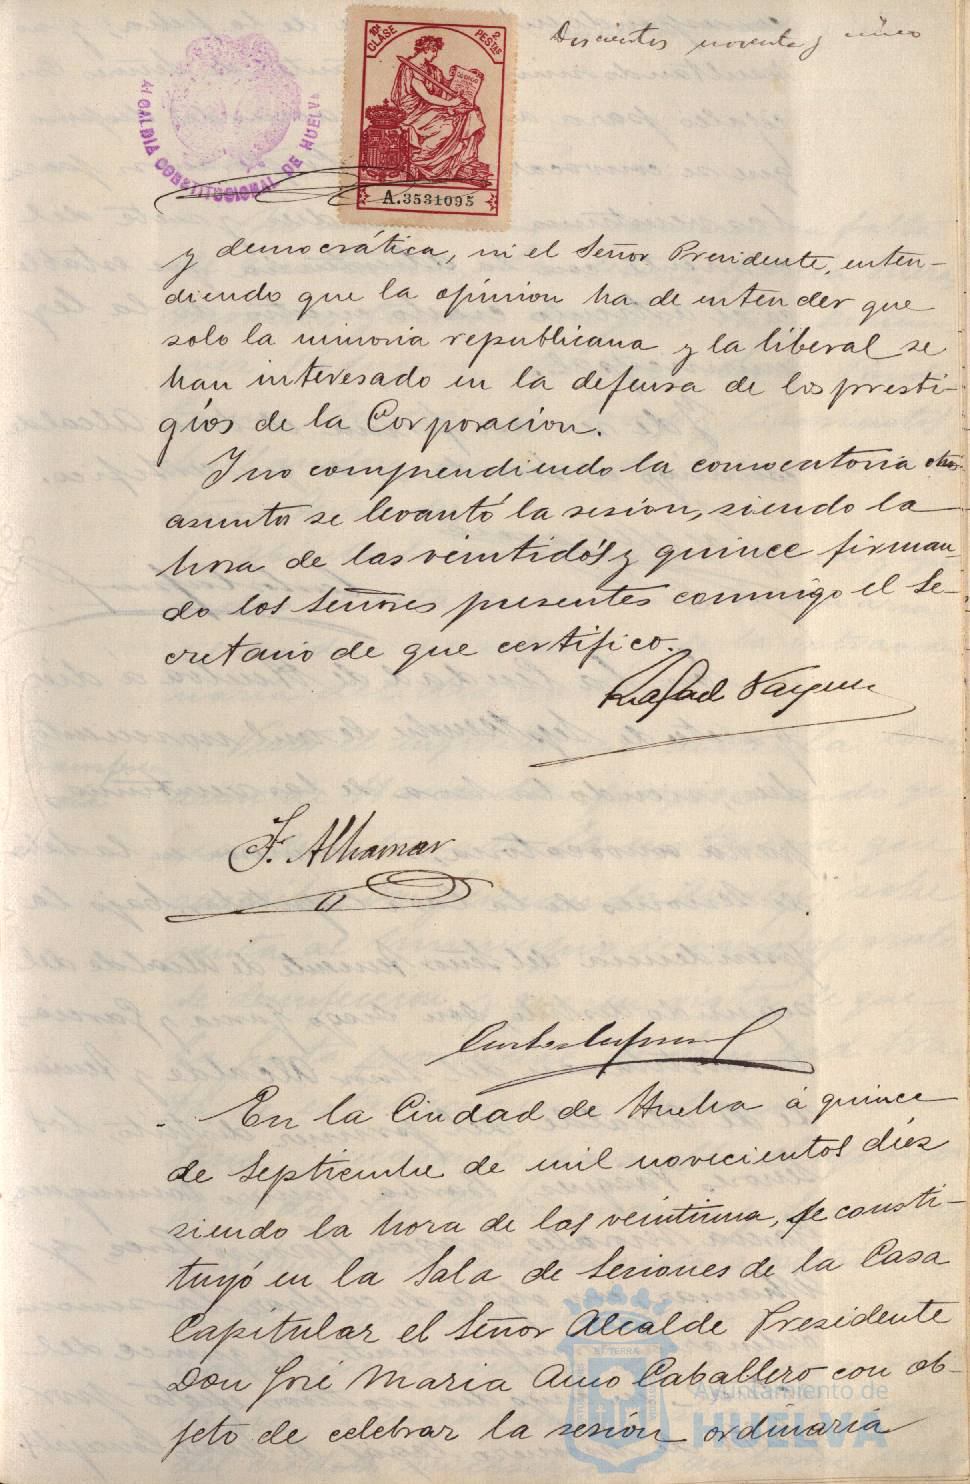 Doscientos noventa y cinco
10ª CLASE
2 PESTAS
A.3531095
ALCALDIA CONSTITUCIONAL DE HUELVA
y democrática, ni el Señor Presidente, enten-
diendo que la opinion ha de entender que
solo la minoria republicana y la liberal se
han interesado en la defensa de los presti-
gios de la Corporacion.
Y no comprendiendo la convocatoria otros
asuntos se levantó la sesion, siendo la
hora de las veintidós y quince firman-
do los Señores presentes conmigo el Se-
cretario de que certifico.
Rafael Vazquez
F. Alhamar
En la Ciudad de Huelva á quince
de Septiembre de mil novecientos diez
siendo la hora de las veintiuna, se consti-
tuyó en la Sala de Sesiones de la Casa
Capitular el Señor Alcalde Presidente
Don José Maria Amo Caballero con ob-
jeto de celebrar la sesion ordinaria
Ayuntamiento de
HUELVA